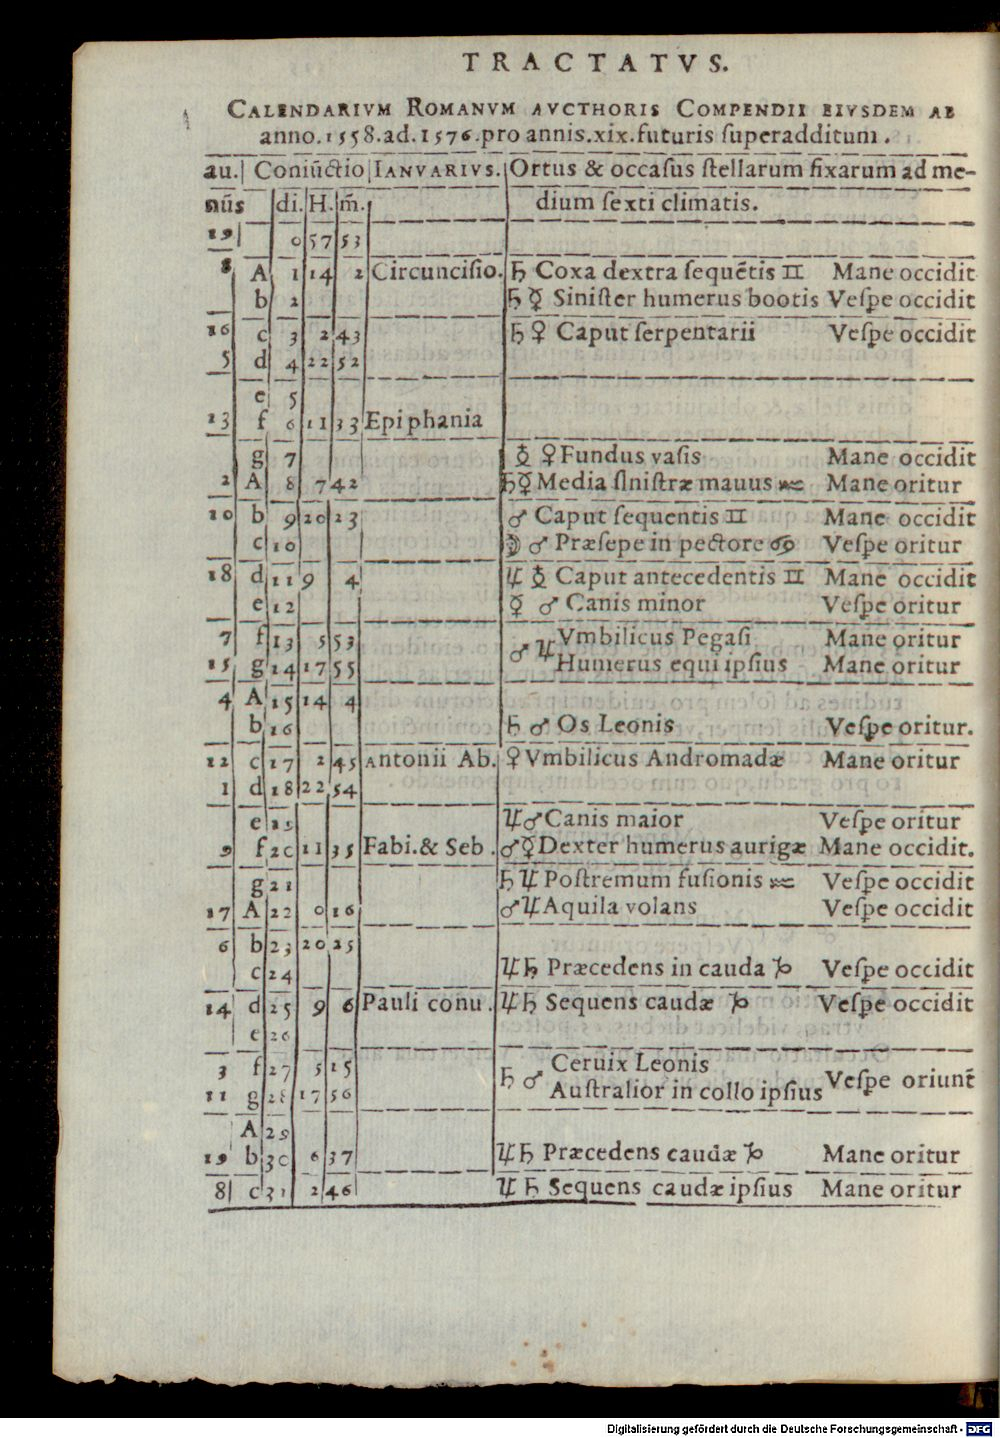 TRACTATVS.
CALENDARIVM ROMANVM AVCTHORIS COMPENDII EIVSDEM AB
anno.1558.ad.1576.pro annis.xix.futuris ſuperadditum.
au. Coniũctio IANVARIVS. Ortus & occaſus ſtellarum fixarum ad me-
nũs di. H. m̃. dium ſexti climatis.
19 0 57 53
8 A 1 14 2 Circunciſio. ♄ Coxa dextra ſequẽtis ♊ Mane occidit
b 2 ♄ ☿ Siniſter humerus bootis Veſpe occidit
16 c 3 2 43 ♄ ♀ Caput ſerpentarii Veſpe occidit
5 d 4 22 52
e 5
13 f 6 11 33 Epiphania
g 7 ♁ ♀ Fundus vaſis Mane occidit
2 A 8 7 42 ♄ ☿ Media ſiniſtræ mauus ♒ Mane oritur
10 b 9 20 23 ♂ Caput ſequentis ♊ Mane occidit
c 10 ☽ ♂ Præſepe in pectore ♋ Veſpe oritur
18 d 11 9 4 ♃ ♁ Caput antecedentis ♊ Mane occidit
e 12 ☿ ♂ Canis minor Veſpe oritur
7 f 13 5 53 ♂ ♃ Vmbilicus Pegaſi Mane oritur
15 g 14 17 55 Humerus equi ipſius Mane oritur
4 A 15 14 4
b 16 ♄ ♂ Os Leonis Veſpe oritur.
12 c 17 2 45 Antonii Ab. ♀ Vmbilicus Andromadæ Mane oritur
1 d 18 22 54
e 19 ♃ ♂ Canis maior Veſpe oritur
9 f 20 11 35 Fabi. & Seb. ♂ ☿ Dexter humerus aurigæ Mane occidit.
g 21 ♄ ♃ Poſtremum fuſionis ♒ Veſpe occidit
17 A 22 0 16 ♂ ♃ Aquila volans Veſpe occidit
6 b 23 20 25
c 24 ♃ ♄ Præcedens in cauda ♑ Veſpe occidit
14 d 25 9 6 Pauli conu. ♃ ♄ Sequens caudæ ♑ Veſpe occidit
e 26
3 f 27 5 15 ♄ ♂ Ceruix Leonis Veſpe oriunt̃
11 g 28 17 56 Auſtralior in collo ipſius
A 29
19 b 30 6 37 ♃ ♄ Præcedens caudæ ♑ Mane oritur
8 c 31 2 46 ♃ ♄ Sequens caudæ ipſius Mane oritur
Digitalisierung gefördert durch die Deutsche Forschungsgemeinschaft - DFG